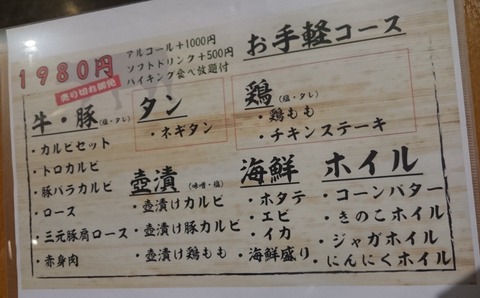 お手軽コース
1980円
アルコール+1000円
ソフトドリンク+500円
バイキング食べ放題付
売り切れ御免
牛・豚(塩・タレ)
・カルビセット
・トロカルビ
・豚バラカルビ
・ロース
・三元豚肩ロース
・赤身肉
タン
・ネギタン
鶏(塩・タレ)
・鶏もも
・チキンステーキ
壺漬(味噌・塩)
・壺漬けカルビ
・壺漬け豚カルビ
・壺漬け鶏もも
海鮮
・ホタテ
・エビ
・イカ
・海鮮盛り
ホイル
・コーンバター
・きのこホイル
・ジャガホイル
・にんにくホイル